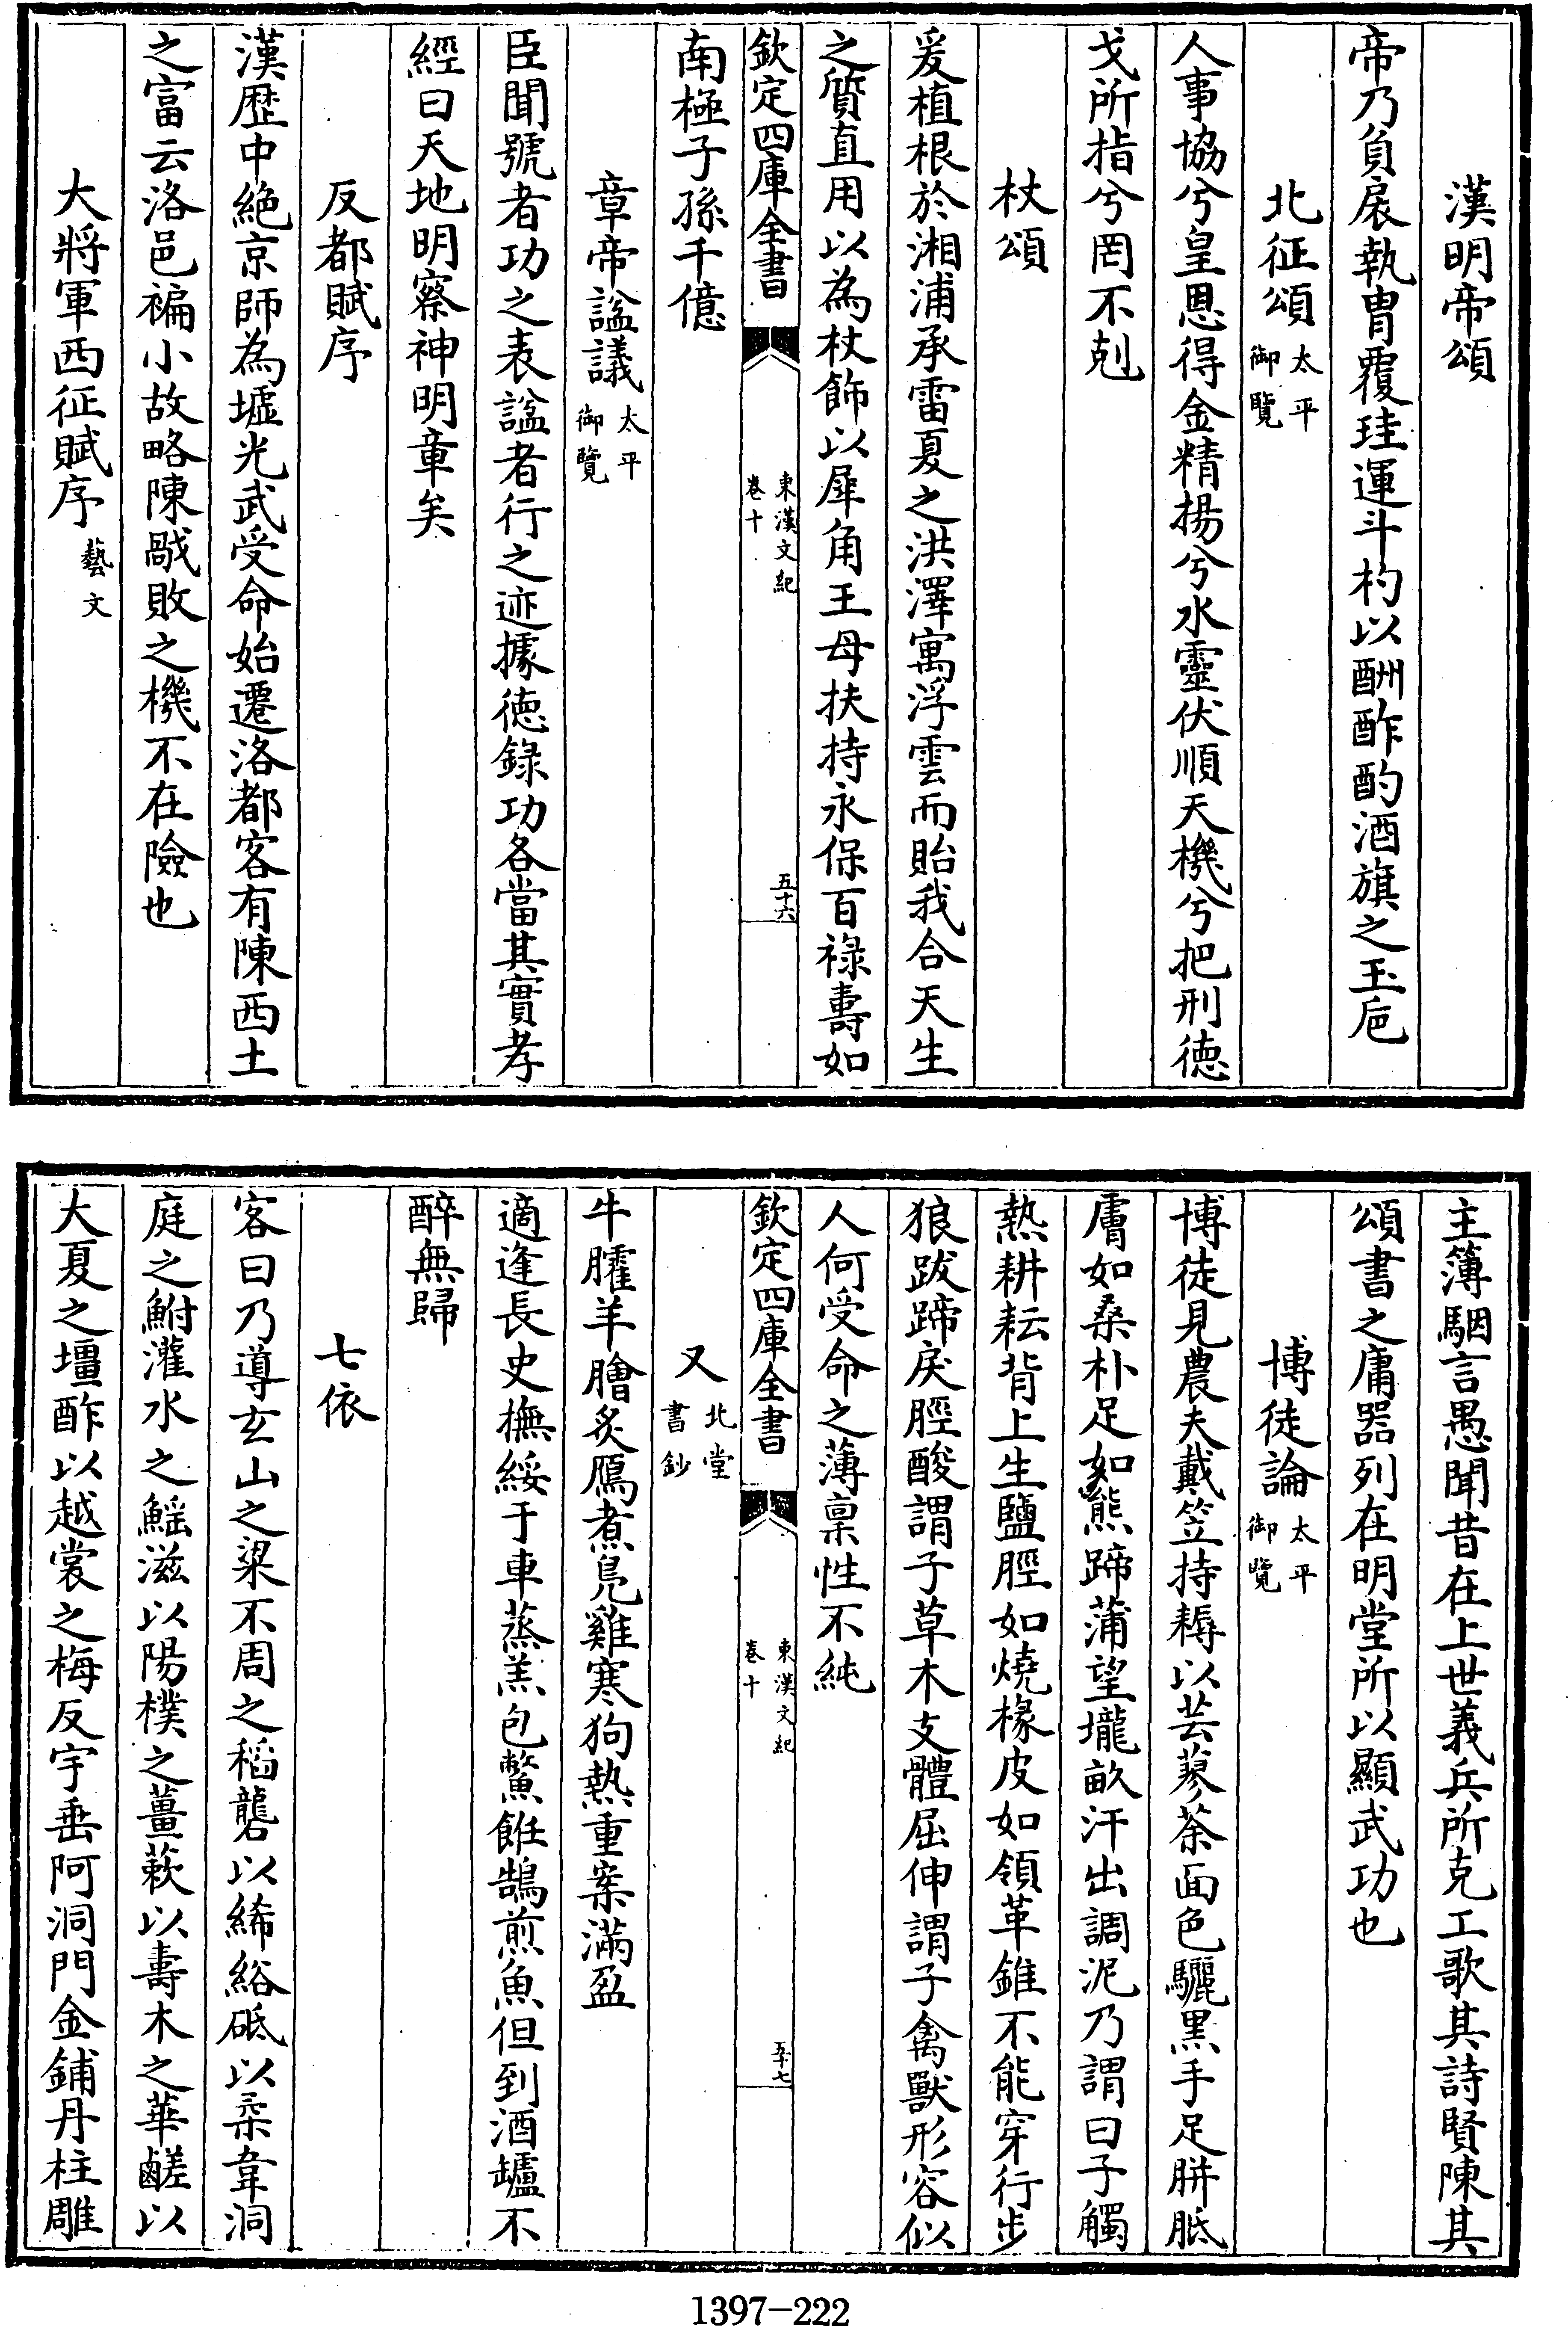 漢明帝頌
帝乃負扆執冑覆珪運斗杓以酬酢酌酒旗之玉巵
北征頌太平御覽
人事協兮皇恩得金精揚兮水靈伏順天機兮把刑徳
戈所指兮罔不剋
杖頌
爰植根於湘浦承雷夏之洪澤寓浮雲而貽我合天生
之質直用以為杖飾以犀角王母扶持永保百禄壽如
欽定四庫全書
東漢文紀
卷十
五十六
南極子孫千億
章帝諡議太平御覽
臣聞號者功之表諡者行之迹據徳錄功各當其實孝
經曰天地明察神明章矣
反都賦序
漢歴中絶京師為墟光武受命始遷洛都客有陳西土
之富云洛邑褊小故略陳敗之機不在險也
大將軍西征賦序藝文
主簿駰言愚聞昔在上世義兵所克工歌其詩賢陳其
頌書之庸器列在明堂所以顯武功也
博徒論太平御覽
博徒見農夫戴笠持耨以芸蓼荼面色驪黒手足胼胝
膚如桑朴足如熊蹄蒲望壠畝汗出調泥乃謂曰子觸
熱耕耘背上生鹽脛如燒椽皮如領革錐不能穿行步
狼跋蹄戾脛酸謂子草木支體屈伸謂子禽獸形容似
人何受命之薄稟性不純
欽定四庫全書
東漢文紀
卷十
五十七
又北堂書鈔
牛臛羊膾炙鴈煮鳧雞寒狗熱重案滿盈
適逢長史撫綏于車蒸羔包鱉餁鵠煎魚但到酒壚不
醉無歸
七依
客曰乃導玄山之粱不周之稻礱以絺綌砥以柔韋洞
庭之鮒灌水之鰩滋以陽樸之薑蔌以壽木之華鹺以
大夏之壃酢以越裳之梅反宇垂阿洞門金鋪丹柱雕
1397-222